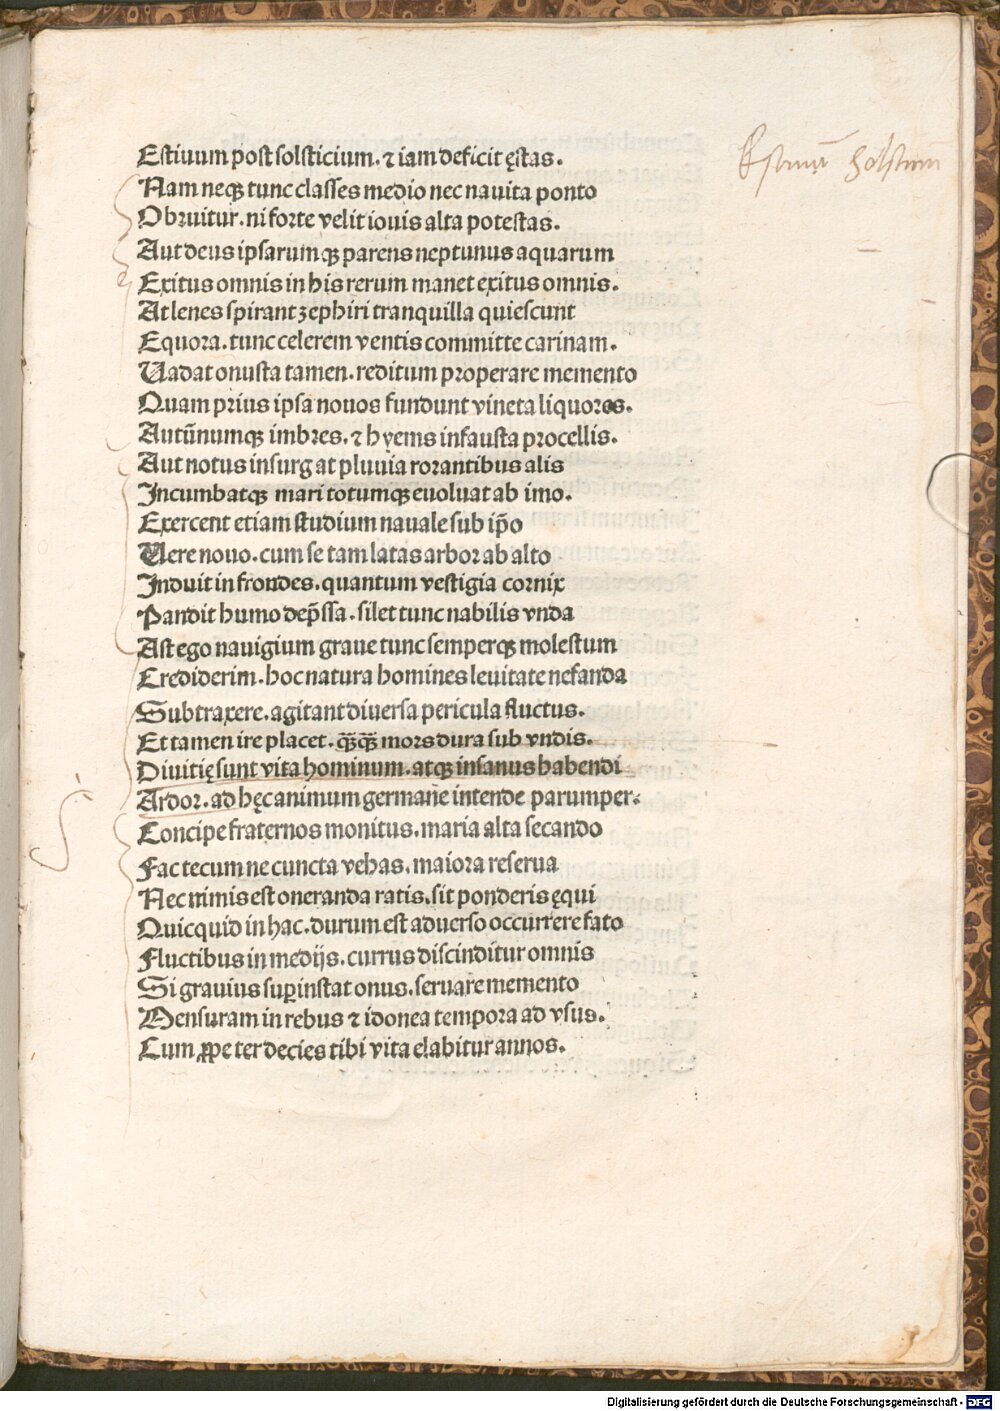 Estiuum post solsticium. ⁊ iam deficit ęstas.
Nam neqꝫ tunc classes medio nec nauita ponto
Obruitur. ni forte velit iouis alta potestas.
Aut deus ipsarumqꝫ parens neptunus aquarum
Exitus omnis in his rerum manet exitus omnis.
At lenes spirant zephiri tranquilla quiescunt
Equora. tunc celerem ventis committe carinam.
Uadat onusta tamen. reditum properare memento
Quam prius ipsa nouos fundunt vineta liquores.
Autũnumqꝫ imbres. ⁊ hyems infausta procellis.
Aut notus insurgat pluuia rorantibus alis
Incumbatqꝫ mari totumqꝫ euoluat ab imo.
Exercent etiam studium nauale sub ip̃o
Uere nouo. cum se tam latas arbor ab alto
Induit in frondes. quantum vestigia cornix
Pandit humo dep̃ssa. silet tunc nabilis vnda
Ast ego nauigium graue tunc semperqꝫ molestum
Crediderim. hoc natura homines leuitate nefanda
Subtraxere. agitant diuersa pericula fluctus.
Et tamen ire placet. qꝫ̃qꝫ̃ mors dura sub vndis.
Diuitię sunt vita hominum. atqꝫ insanus habendi
Ardor. ad hęc animum germañe intende parumper.
Concipe fraternos monitus. maria alta secando
Fac tecum ne cuncta vehas. maiora reserua
Nec nimis est oneranda ratis. sit ponderis ęqui
Quicquid in hac. durum est aduerso occurrere fato
Fluctibus in medijs. currus discinditur omnis
Si grauius suꝑinstat onus. seruare memento
Mensuram in rebus ⁊ idonea tempora ad vsus.
Cum ꝓpe ter decies tibi vita elabitur annos.
Digitalisierung gefördert durch die Deutsche Forschungsgemeinschaft - DFG